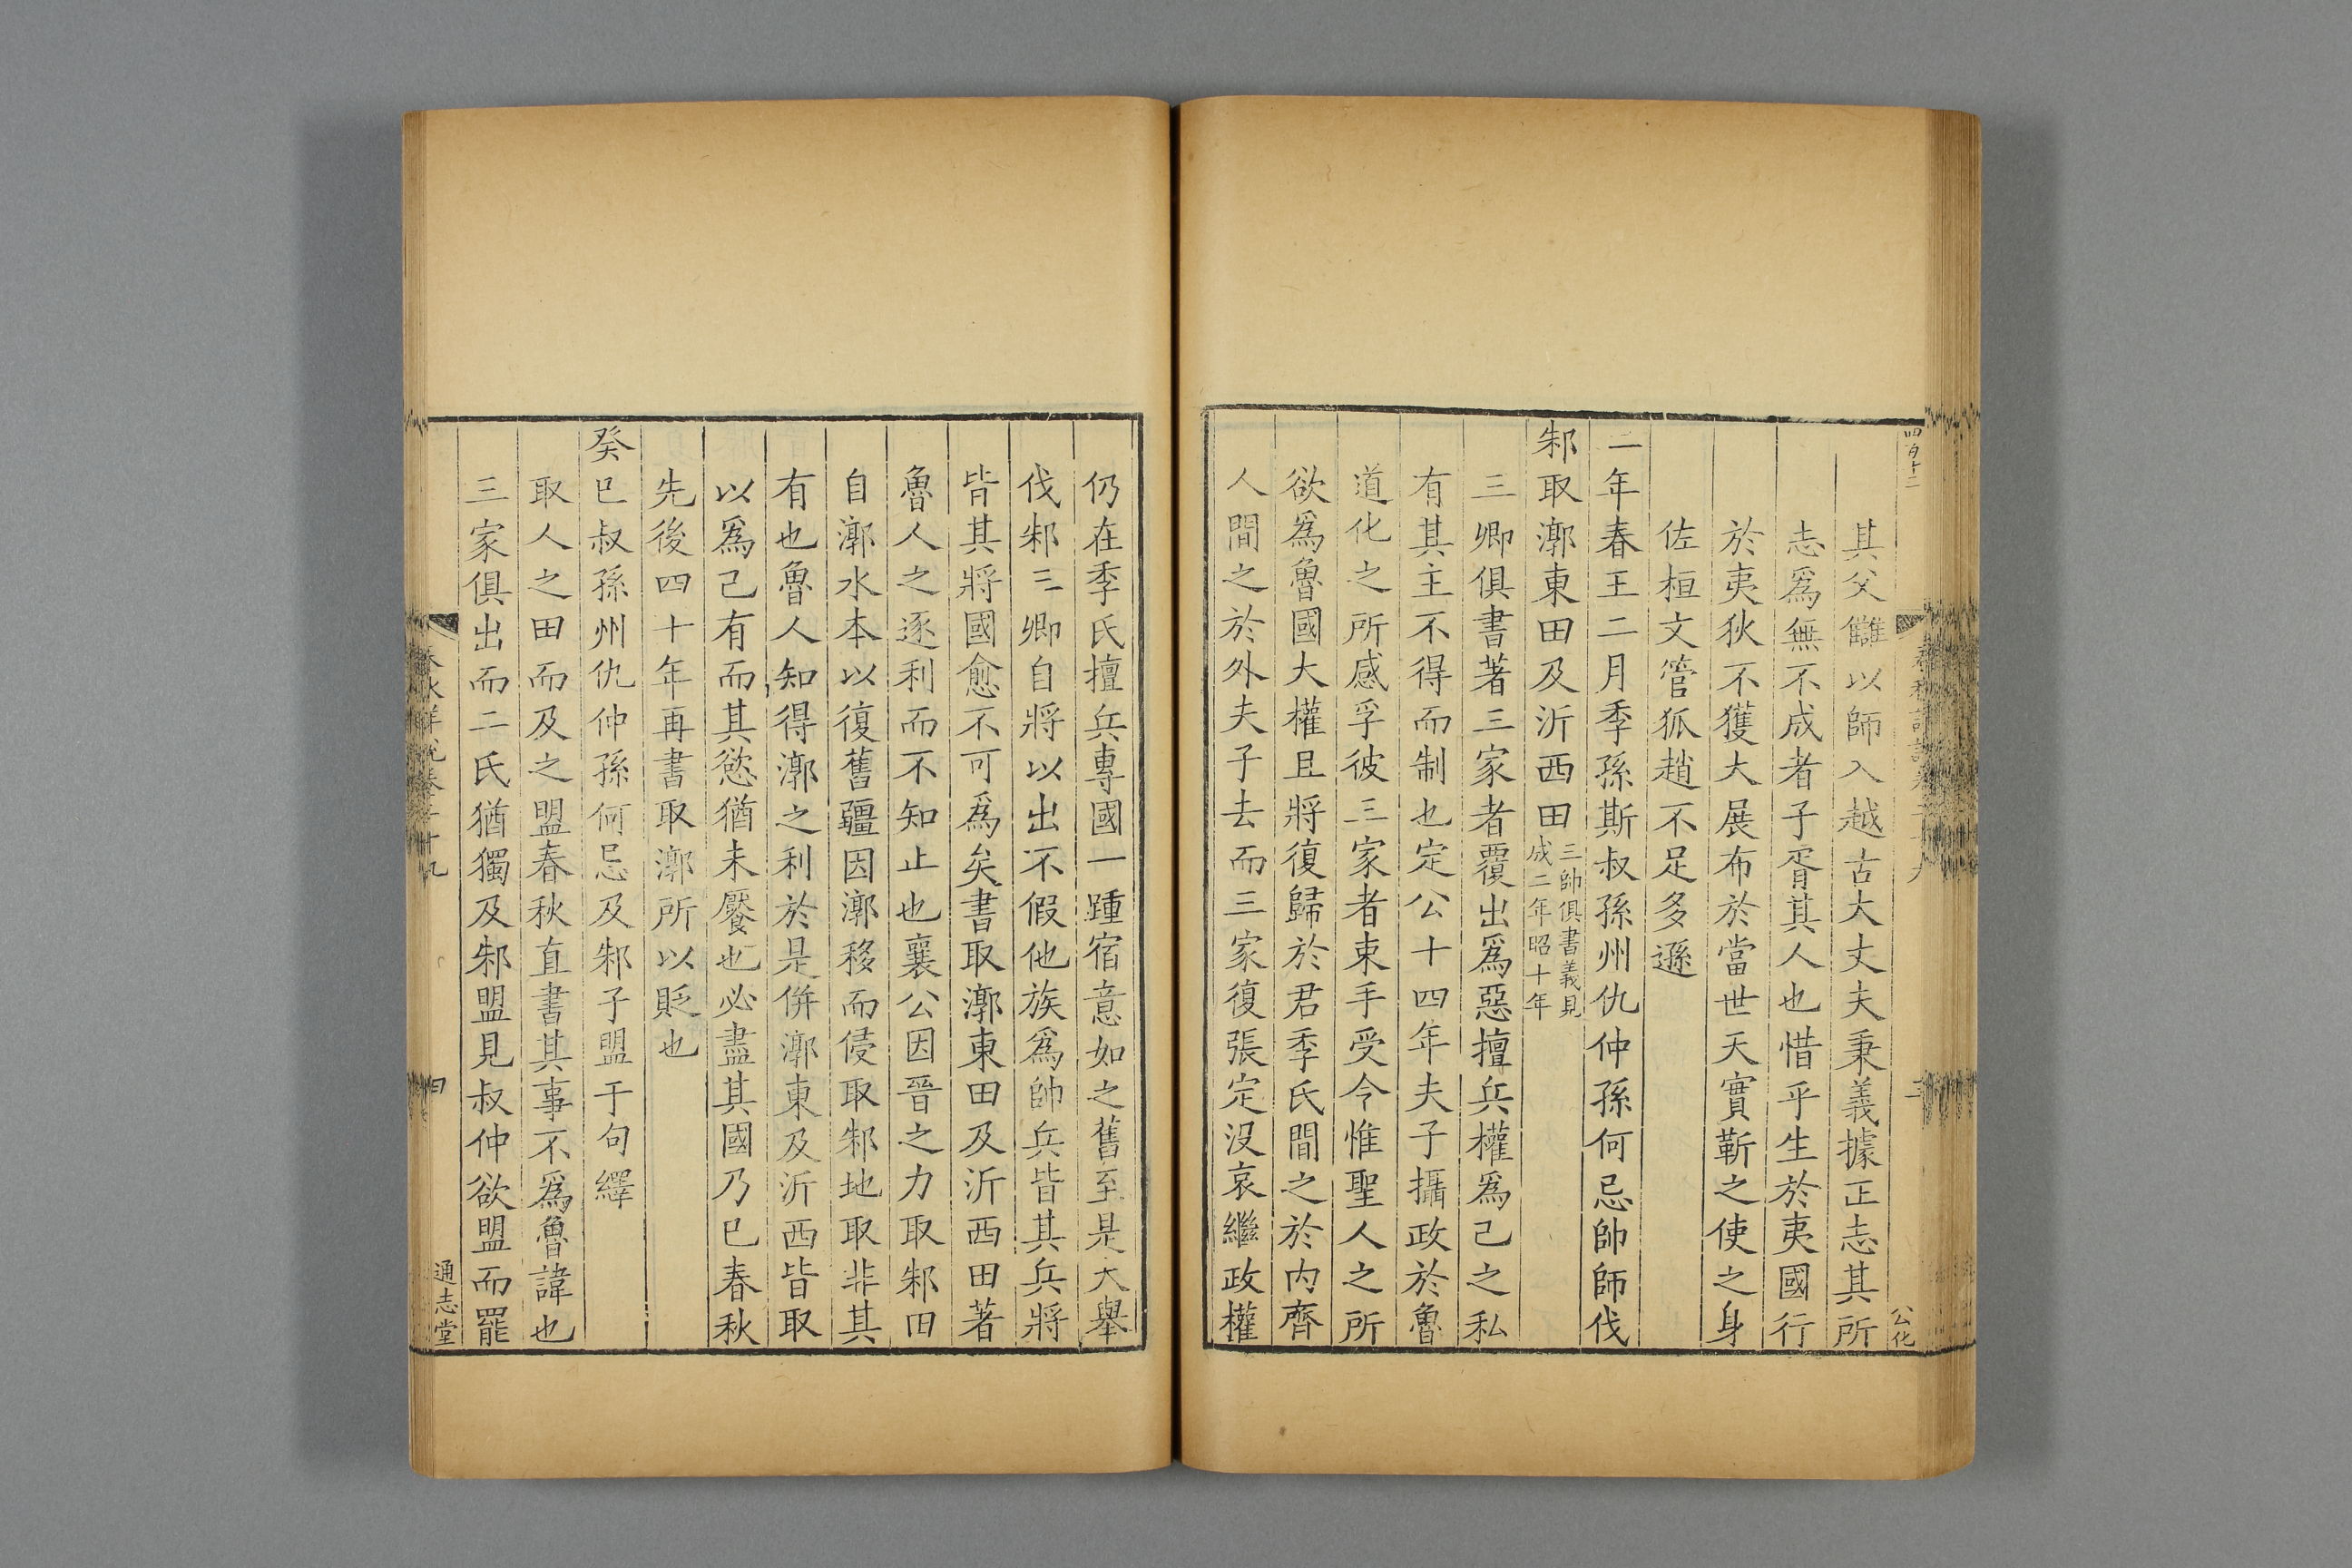 四百十二
公化
其父讎以師入越古大丈夫秉義據正志其所
志爲無不成者子胥其人也惜乎生於夷國行
於夷狄不獲大展布於當世天實靳之使之身
佐桓文管狐趙不足多遜
二年春王二月季孫斯叔孫州仇仲孫何忌帥師伐
邾取漷東田及沂西田
三帥俱書義見
成二年昭十年
三卿俱書著三家者覆出爲惡擅兵權爲己之私
有其主不得而制也定公十四年夫子攝政於魯
道化之所感孚彼三家者束手受令惟聖人之所
欲爲魯國大權且將復歸於君季氏間之於內齊
人間之於外夫子去而三家復張定沒哀繼政權
仍在季氏擅兵專國一踵宿意如之舊至是大舉
伐邾三卿自將以出不假他族爲帥兵皆其兵將
皆其將國愈不可爲矣書取漷東田及沂西田著
魯人之逐利而不知止也襄公因晉之力取邾田
自漷水本以復舊疆因漷移而侵取邾地取非其
有也魯人知得漷之利於是併漷東及沂西皆取
以爲己有而其慾猶未饜也必盡其國乃已春秋
先後四十年再書取漷所以貶也
癸巳叔孫州仇仲孫何忌及邾子盟于句繹
取人之田而及之盟春秋直書其事不爲魯諱也
三家俱出而二氏猶獨及邾盟見叔仲欲盟而罷
通志堂